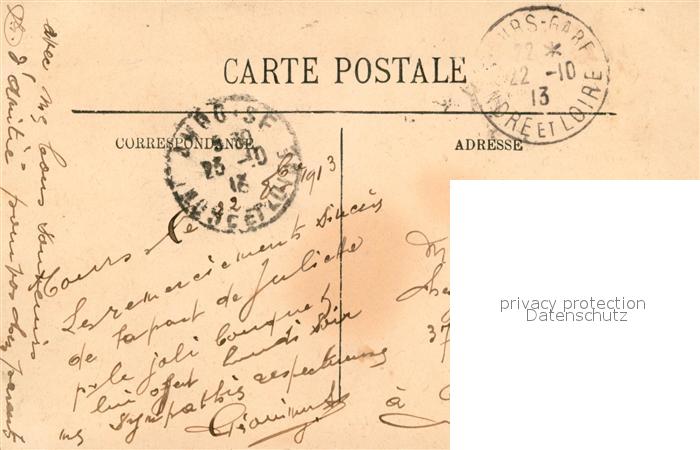 CARTE POSTALE
CORRESPONDANCE
ADRESSE
TOURS-GARE
22 *
22 -10
13
INDRE ET LOIRE
23 -10
13
Tours le 22 8bre 1913
Les remerciements sincères
de la part de Juliette
pr le joli bouquet
lui offert lundi soir
mes sympathies respectueuses
avec mes bons souvenirs
d'amitié pour vos chers parents
37
à
privacy protection
Datenschutz